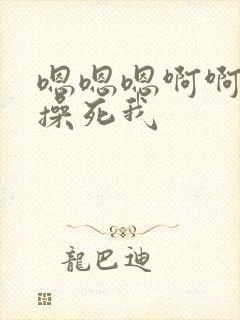 嗯嗯嗯啊啊
操死我
龍巴迪